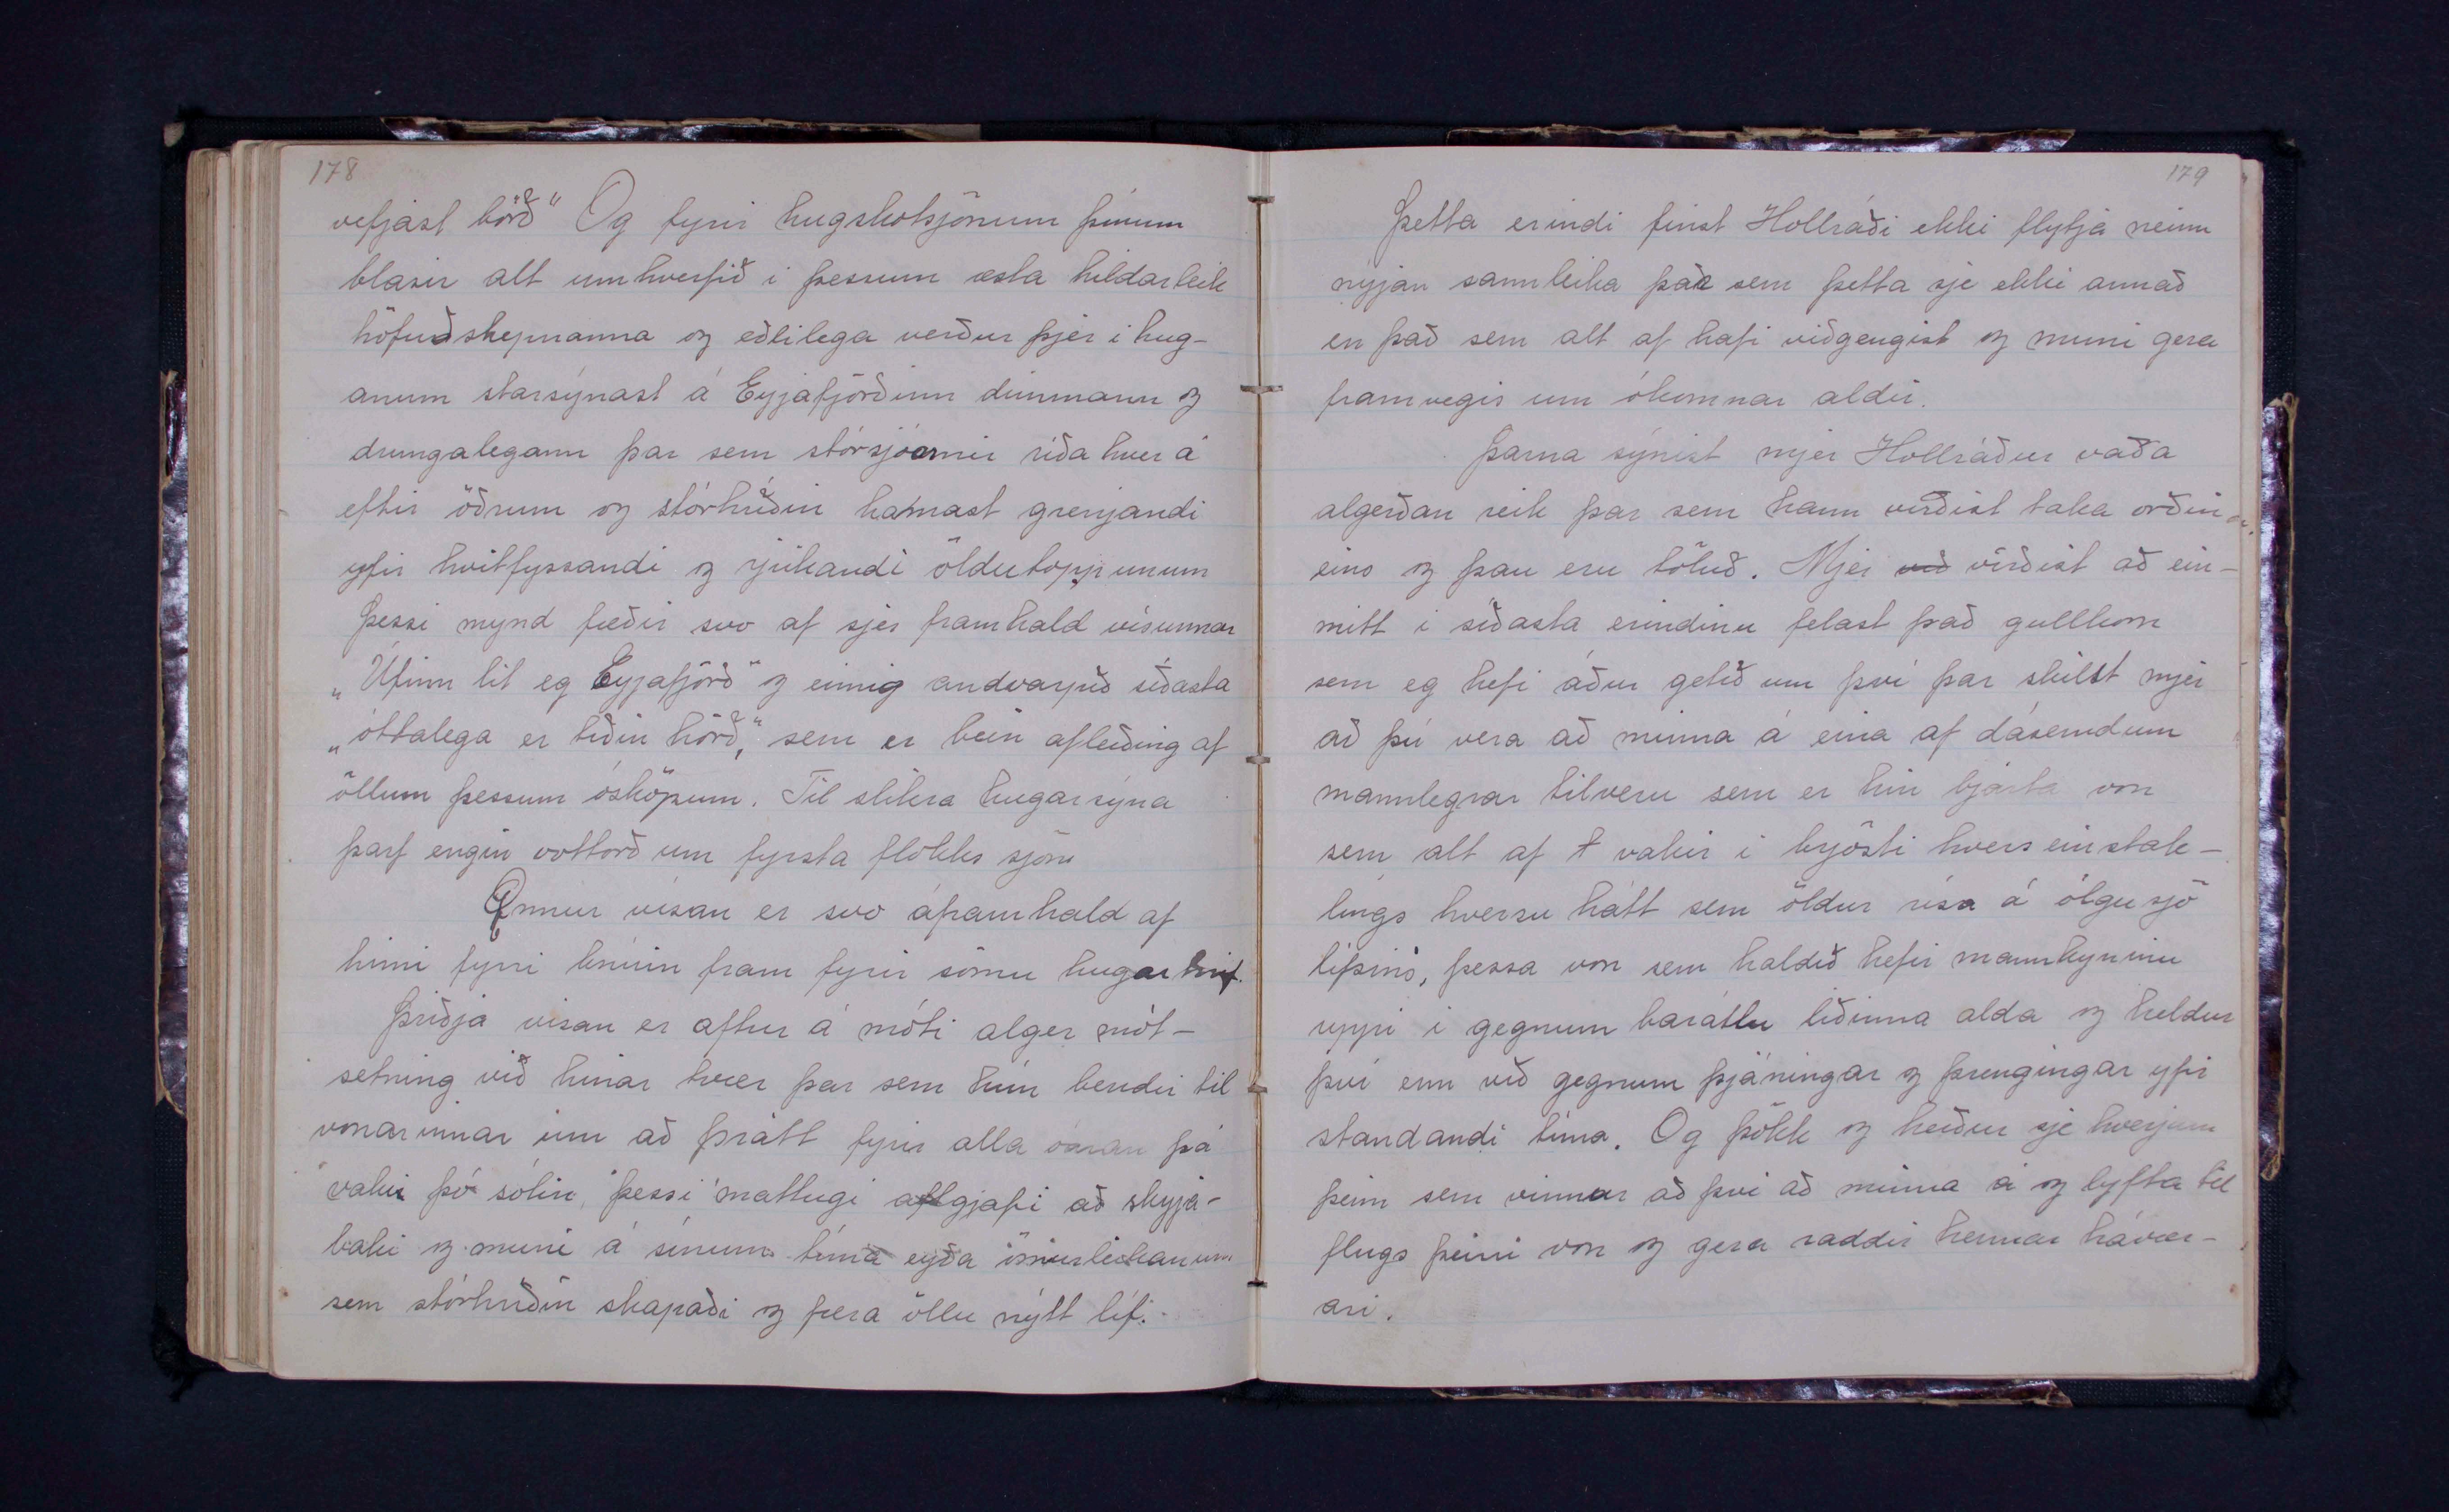 178
vefjast börð" Og fyrir hugskotsjónum þínum
blasir alt umhverfið i þessum æsta hildarleik
höfuðskepnanna og eðlilega verður þjer i hug-
anum starsýnast á Eyjafjörðinn dimmann og
drungalegann þar sem stórsjóarnir ríða hver á
eftir öðrum og stórhríðin hamast grenjandi
yfir hvitfyssandi og rjúkandi öldutoppunum
Þessi mynd fæðir svo af sjer framhald vísunnar
„Úfinn lit eg Eyjafjörð" og einnig andvarpið síðasta
„óttalega er tíðin hörð," sem er bein afleiðing af
öllum þessum ósköpum. Til slíkra hugarsýna
þarf engin vottorð um fyrsta flokks sjón
Önnur vísan er svo áframhald af
hinni fyrri knúin fram fyrir sömu hugarhrif.
Þriðja vísan er aftur á móti alger mót-
setning við hinar tvær þar sem hún bendir til
vonarinnar um að þrátt fyrir alla óáran þá
vakir þó sólin, þessi máttugi aflgjafi að skyja-
baki og muni á sínum tíma eyða ömurleikanum
sem stórhríðin skapaði og færa öllu nýtt líf.
179
Þetta erindi finst Hollráði ekki flytja neinn
nýjan sannleika þar sem þetta sje ekki annað
en það sem alt af hafi viðgengist og muni gera
framvegis um ókomnar aldir.
Þarna sýnist mjer Hollráður vaða
algerðan reik þar sem hann virðist taka orðin
eins og þau eru töluð. Mjer við virðist að ein-
mitt i síðasta erindinu felast það gullkorn
sem eg hefi áður getið um því þar skilst mjer
að þú vera að minna á eina af dásemdum
mannlegrar tilveru sem er hin bjarta von
sem alt af t vakir i brjósti hvers einstak-
lings hversu hátt sem öldur rísa á ólgusjó
lífsins, þessa von sem haldið hefir mannkyninu
uppi i gegnum baráttu liðinna alda og heldur
því enn við gegnum þjáningar og þrengingar yfir
standandi tíma. Og þökk og heiður sje hverjum
þeim sem vinnur að því að minna á og lyfta til
flugs þeirri von og gera raddir hennar hávær-
ari.